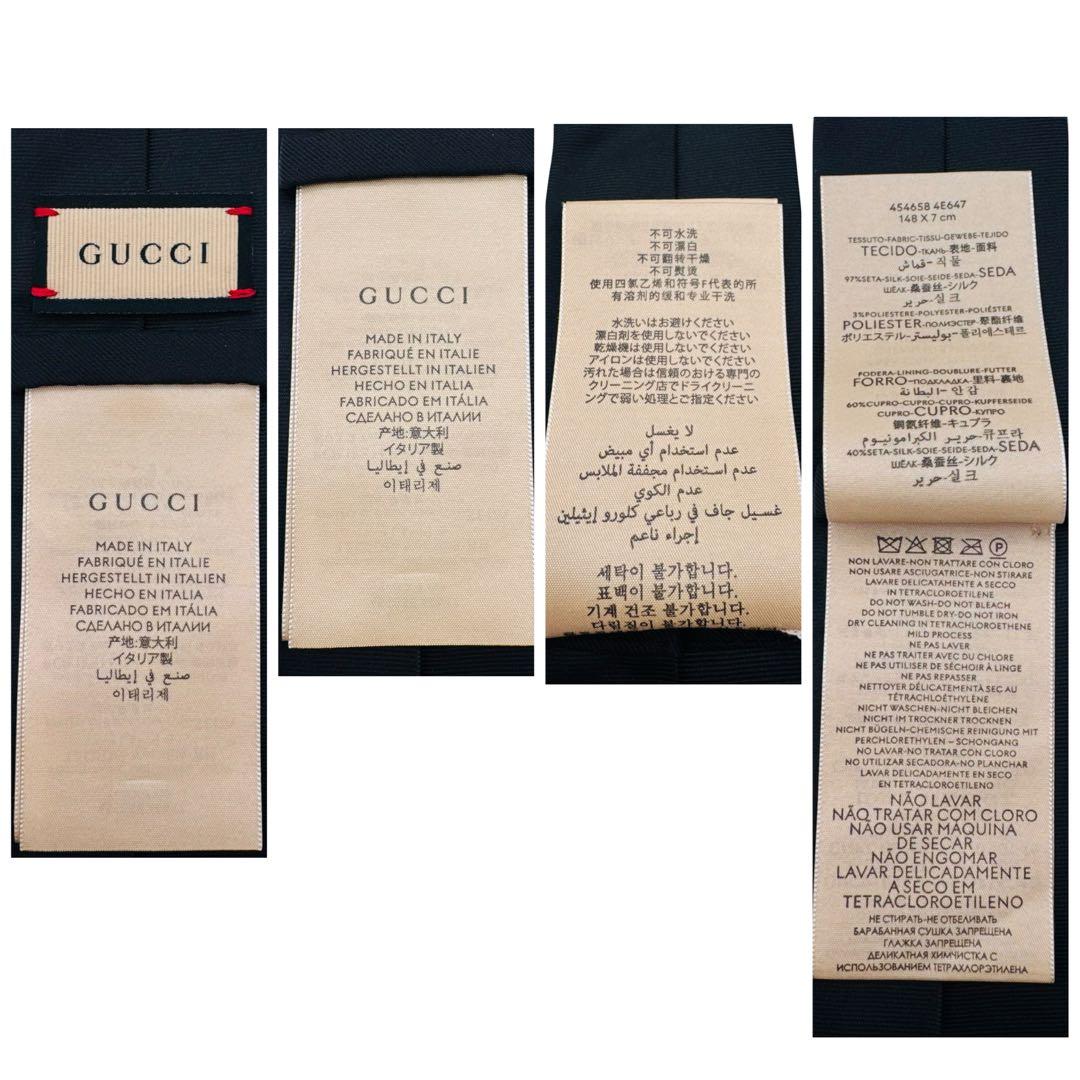 GUCCI
GUCCI
MADE IN ITALY
FABRIQUÉ EN ITALIE
HERGESTELLT IN ITALIEN
HECHO EN ITALIA
FABRICADO EM ITÁLIA
СДЕЛАНО В ИТАЛИИ
产地:意大利
イタリア製
صنع في إيطاليا
이태리제
GUCCI
MADE IN ITALY
FABRIQUÉ EN ITALIE
HERGESTELLT IN ITALIEN
HECHO EN ITALIA
FABRICADO EM ITÁLIA
СДЕЛАНО В ИТАЛИИ
产地:意大利
イタリア製
صنع في إيطاليا
이태리제
不可水洗
不可漂白
不可翻转干燥
不可熨烫
使用四氯乙烯和符号F代表的所
有溶剂的缓和专业干洗
水洗いはお避けください
漂白剤を使用しないでください
乾燥機は使用しないでください
アイロンは使用しないでください
汚れた場合は信頼のおける専門の
クリーニング店でドライクリーニ
ングで弱い処理とご指定ください
لا يغسل
عدم استخدام أي مبيض
عدم استخدام مجففة الملابس
عدم الكوي
غسيل جاف في رباعي كلورو إيثيلين
إجراء ناعم
세탁이 불가합니다.
표백이 불가합니다.
기계 건조 불가합니다.
다림질이 불가합니다.
454658 4E647
148 X 7 cm
TESSUTO-FABRIC-TISSU-GEWEBE-TEJIDO
TECIDO-ТКАНЬ-表地-面料
قماش-직물
97%SETA-SILK-SOIE-SEIDE-SEDA-SEDA
ШЁЛК-桑蚕丝-シルク
حرير-실크
3%POLIESTERE-POLYESTER-POLIÉSTER
POLIESTER-ПОЛИЭСТЕР-聚酯纤维
ポリエステル-بوليستر-폴리에스테르
FODERA-LINING-DOUBLURE-FUTTER
FORRO-ПОДКЛАДКА-里料-裏地
البطانة-안감
60%CUPRO-CUPRO-CUPRO-KUPFERSEIDE
CUPRO-CUPRO-КУПРО
铜氨纤维-キュプラ
حرير الكبرامونيوم-큐프라
40%SETA-SILK-SOIE-SEIDE-SEDA-SEDA
ШЁЛК-桑蚕丝-シルク
حرير-실크
NON LAVARE-NON TRATTARE CON CLORO
NON USARE ASCIUGATRICE-NON STIRARE
LAVARE DELICATAMENTE A SECCO
IN TETRACLOROETILENE
DO NOT WASH-DO NOT BLEACH
DO NOT TUMBLE DRY-DO NOT IRON
DRY CLEANING IN TETRACHLOROETHENE
MILD PROCESS
NE PAS LAVER
NE PAS TRAITER AVEC DU CHLORE
NE PAS UTILISER DE SÉCHOIR À LINGE
NE PAS REPASSER
NETTOYER DÉLICATEMENTÀ SEC AU
TÉTRACHLOÉTHYLÈNE
NICHT WASCHEN-NICHT BLEICHEN
NICHT IM TROCKNER TROCKNEN
NICHT BÜGELN-CHEMISCHE REINIGUNG MIT
PERCHLORETHYLEN – SCHONGANG
NO LAVAR-NO TRATAR CON CLORO
NO UTILIZAR SECADORA-NO PLANCHAR
LAVAR DELICADAMENTE EN SECO
EN TETRACLOROETILENO
NÃO LAVAR
NÃO TRATAR COM CLORO
NÃO USAR MÁQUINA
DE SECAR
NÃO ENGOMAR
LAVAR DELICADAMENTE
A SECO EM
TETRACLOROETILENO
НЕ СТИРАТЬ-НЕ ОТБЕЛИВАТЬ
БАРАБАННАЯ СУШКА ЗАПРЕЩЕНА
ГЛАЖКА ЗАПРЕЩЕНА
ДЕЛИКАТНАЯ ХИМЧИСТКА С
ИСПОЛЬЗОВАНИЕМ ТЕТРАХЛОРЭТИЛЕНА